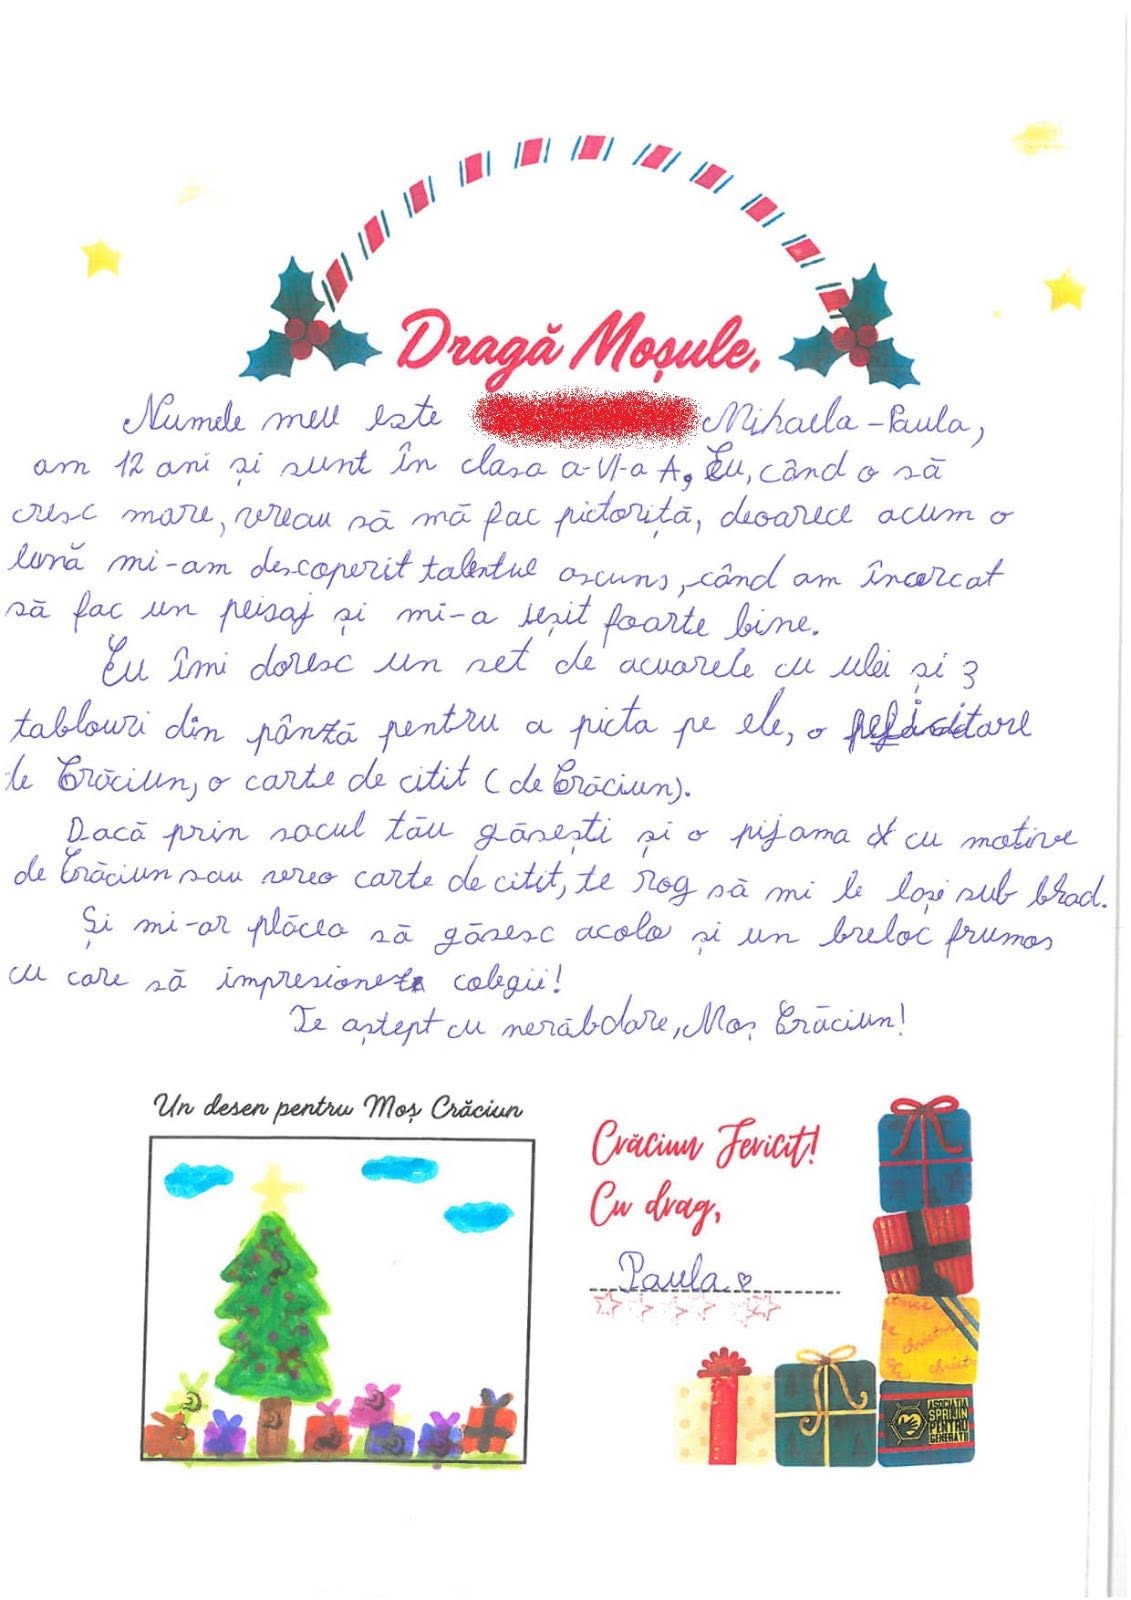 Dragă Moșule,
Numele meu este Mihaela-Paula,
am 12 ani și sunt în clasa a-VI-a A, Eu, când o să
cresc mare, vreau să mă fac pictoriță, deoarece acum o
lună mi-am descoperit talentul ascuns, când am încercat
să fac un peisaj și mi-a ieșit foarte bine.
Eu îmi doresc un set de acuarele cu ulei și 3
tablouri din pânză pentru a picta pe ele, o felicitare
de Crăciun, o carte de citit (de Crăciun).
Dacă prin sacul tău găsești și o pijama cu motive
de Crăciun sau vreo carte de citit, te rog să mi le lași sub brad.
Și mi-ar plăcea să găsesc acolo și un breloc frumos
cu care să impresionez colegii!
Te aștept cu nerăbdare, Moș Crăciun!
Un desen pentru Moș Crăciun
Crăciun Fericit!
Cu drag,
Paula
christmas
ASOCIAȚIA
SPRIJIN
PENTRU
GENERAȚII